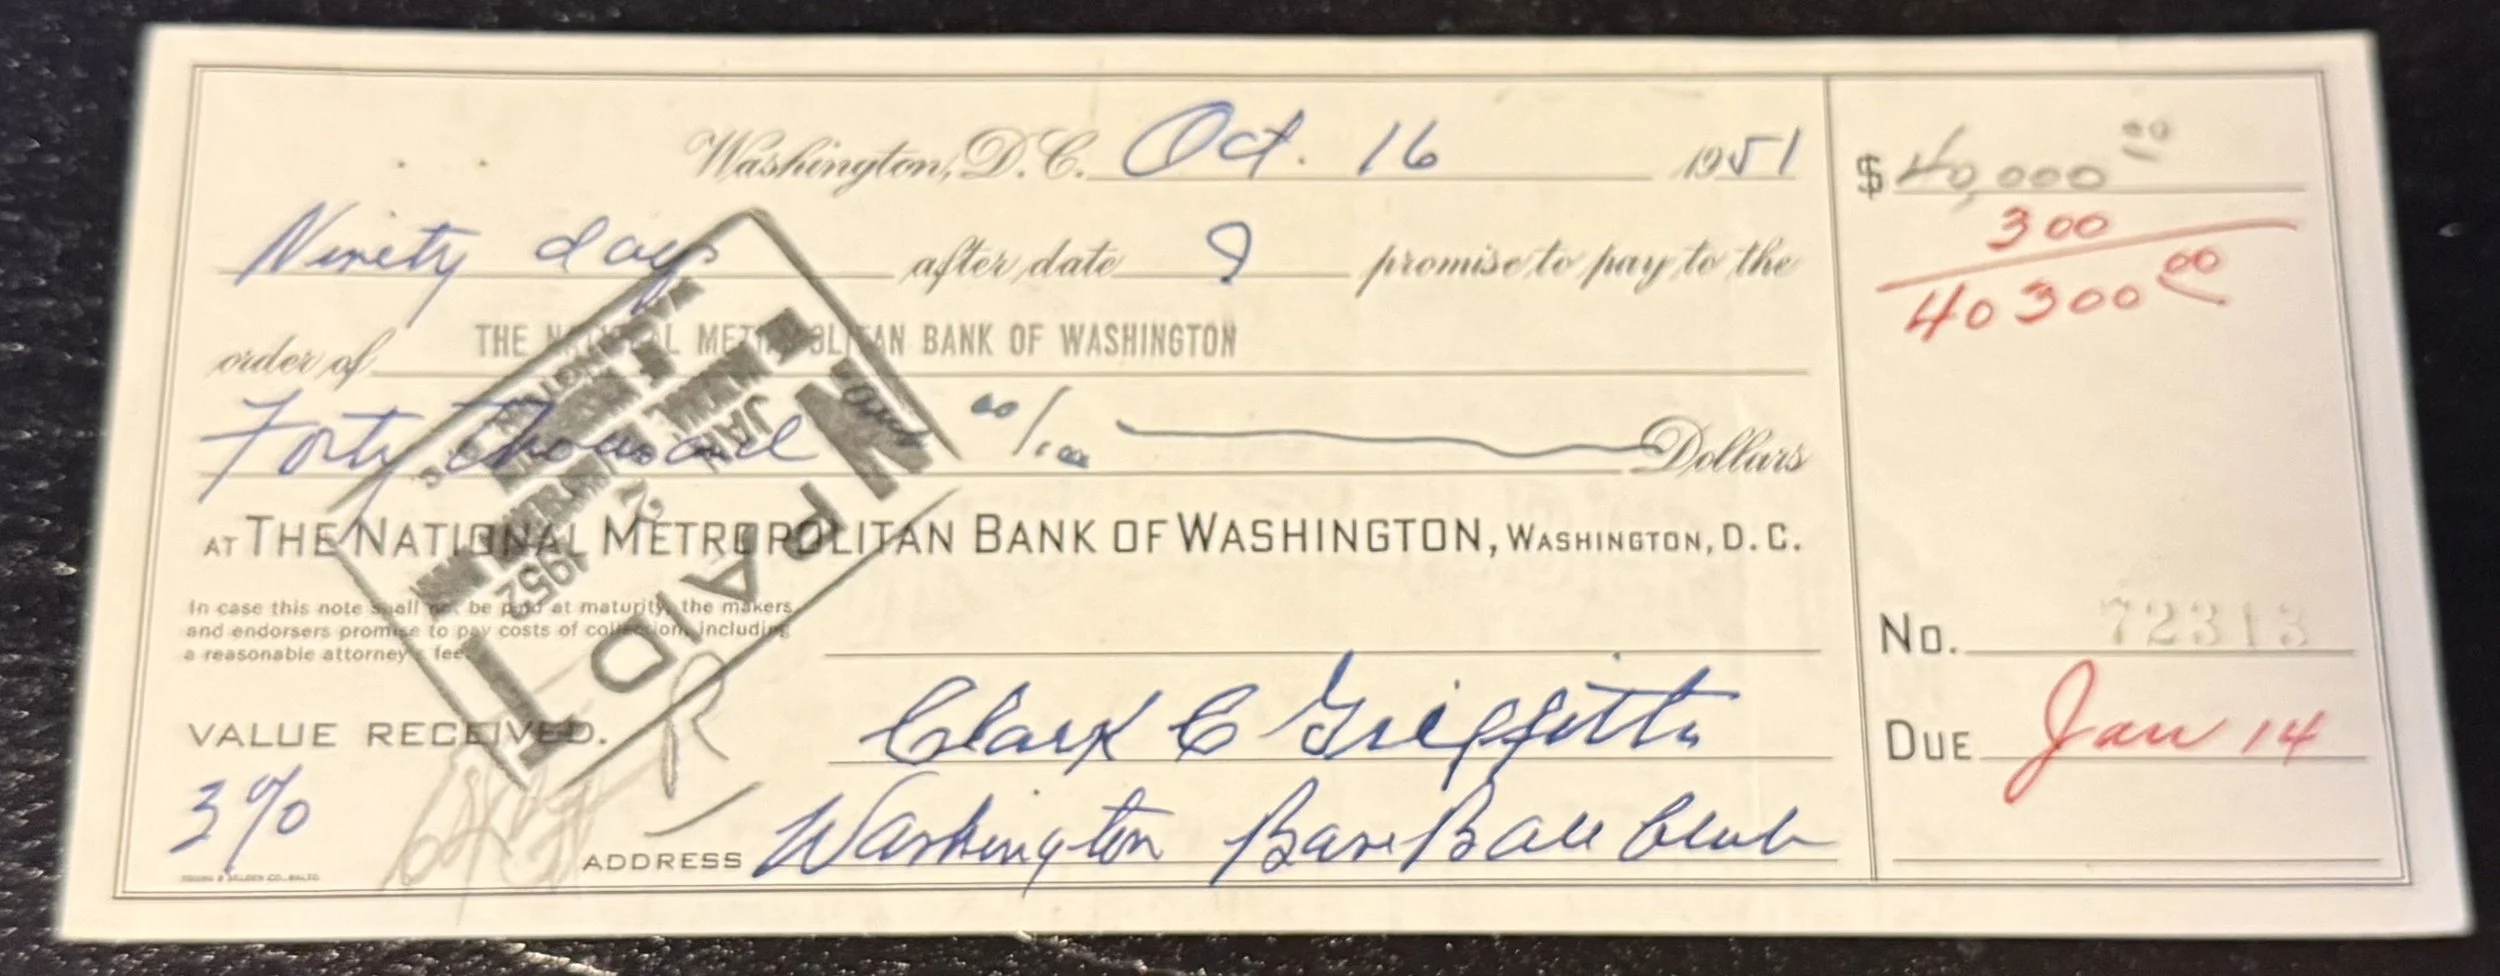 Washington, D.C. Oct. 16 1951
$ 40,000 00
Ninety days after date I promise to pay to the
300
40300 00
order of THE NATIONAL METROPOLITAN BANK OF WASHINGTON
Forty Thousand 00/100 Dollars
AT THE NATIONAL METROPOLITAN BANK OF WASHINGTON, WASHINGTON, D.C.
In case this note shall not be paid at maturity, the makers
and endorsers promise to pay costs of collection, including
a reasonable attorney's fee.
No. 72313
VALUE RECEIVED.
Clark C Griffith
Due Jan 14
3%
ADDRESS Washington Base Ball Club
PAID
JAN
1952